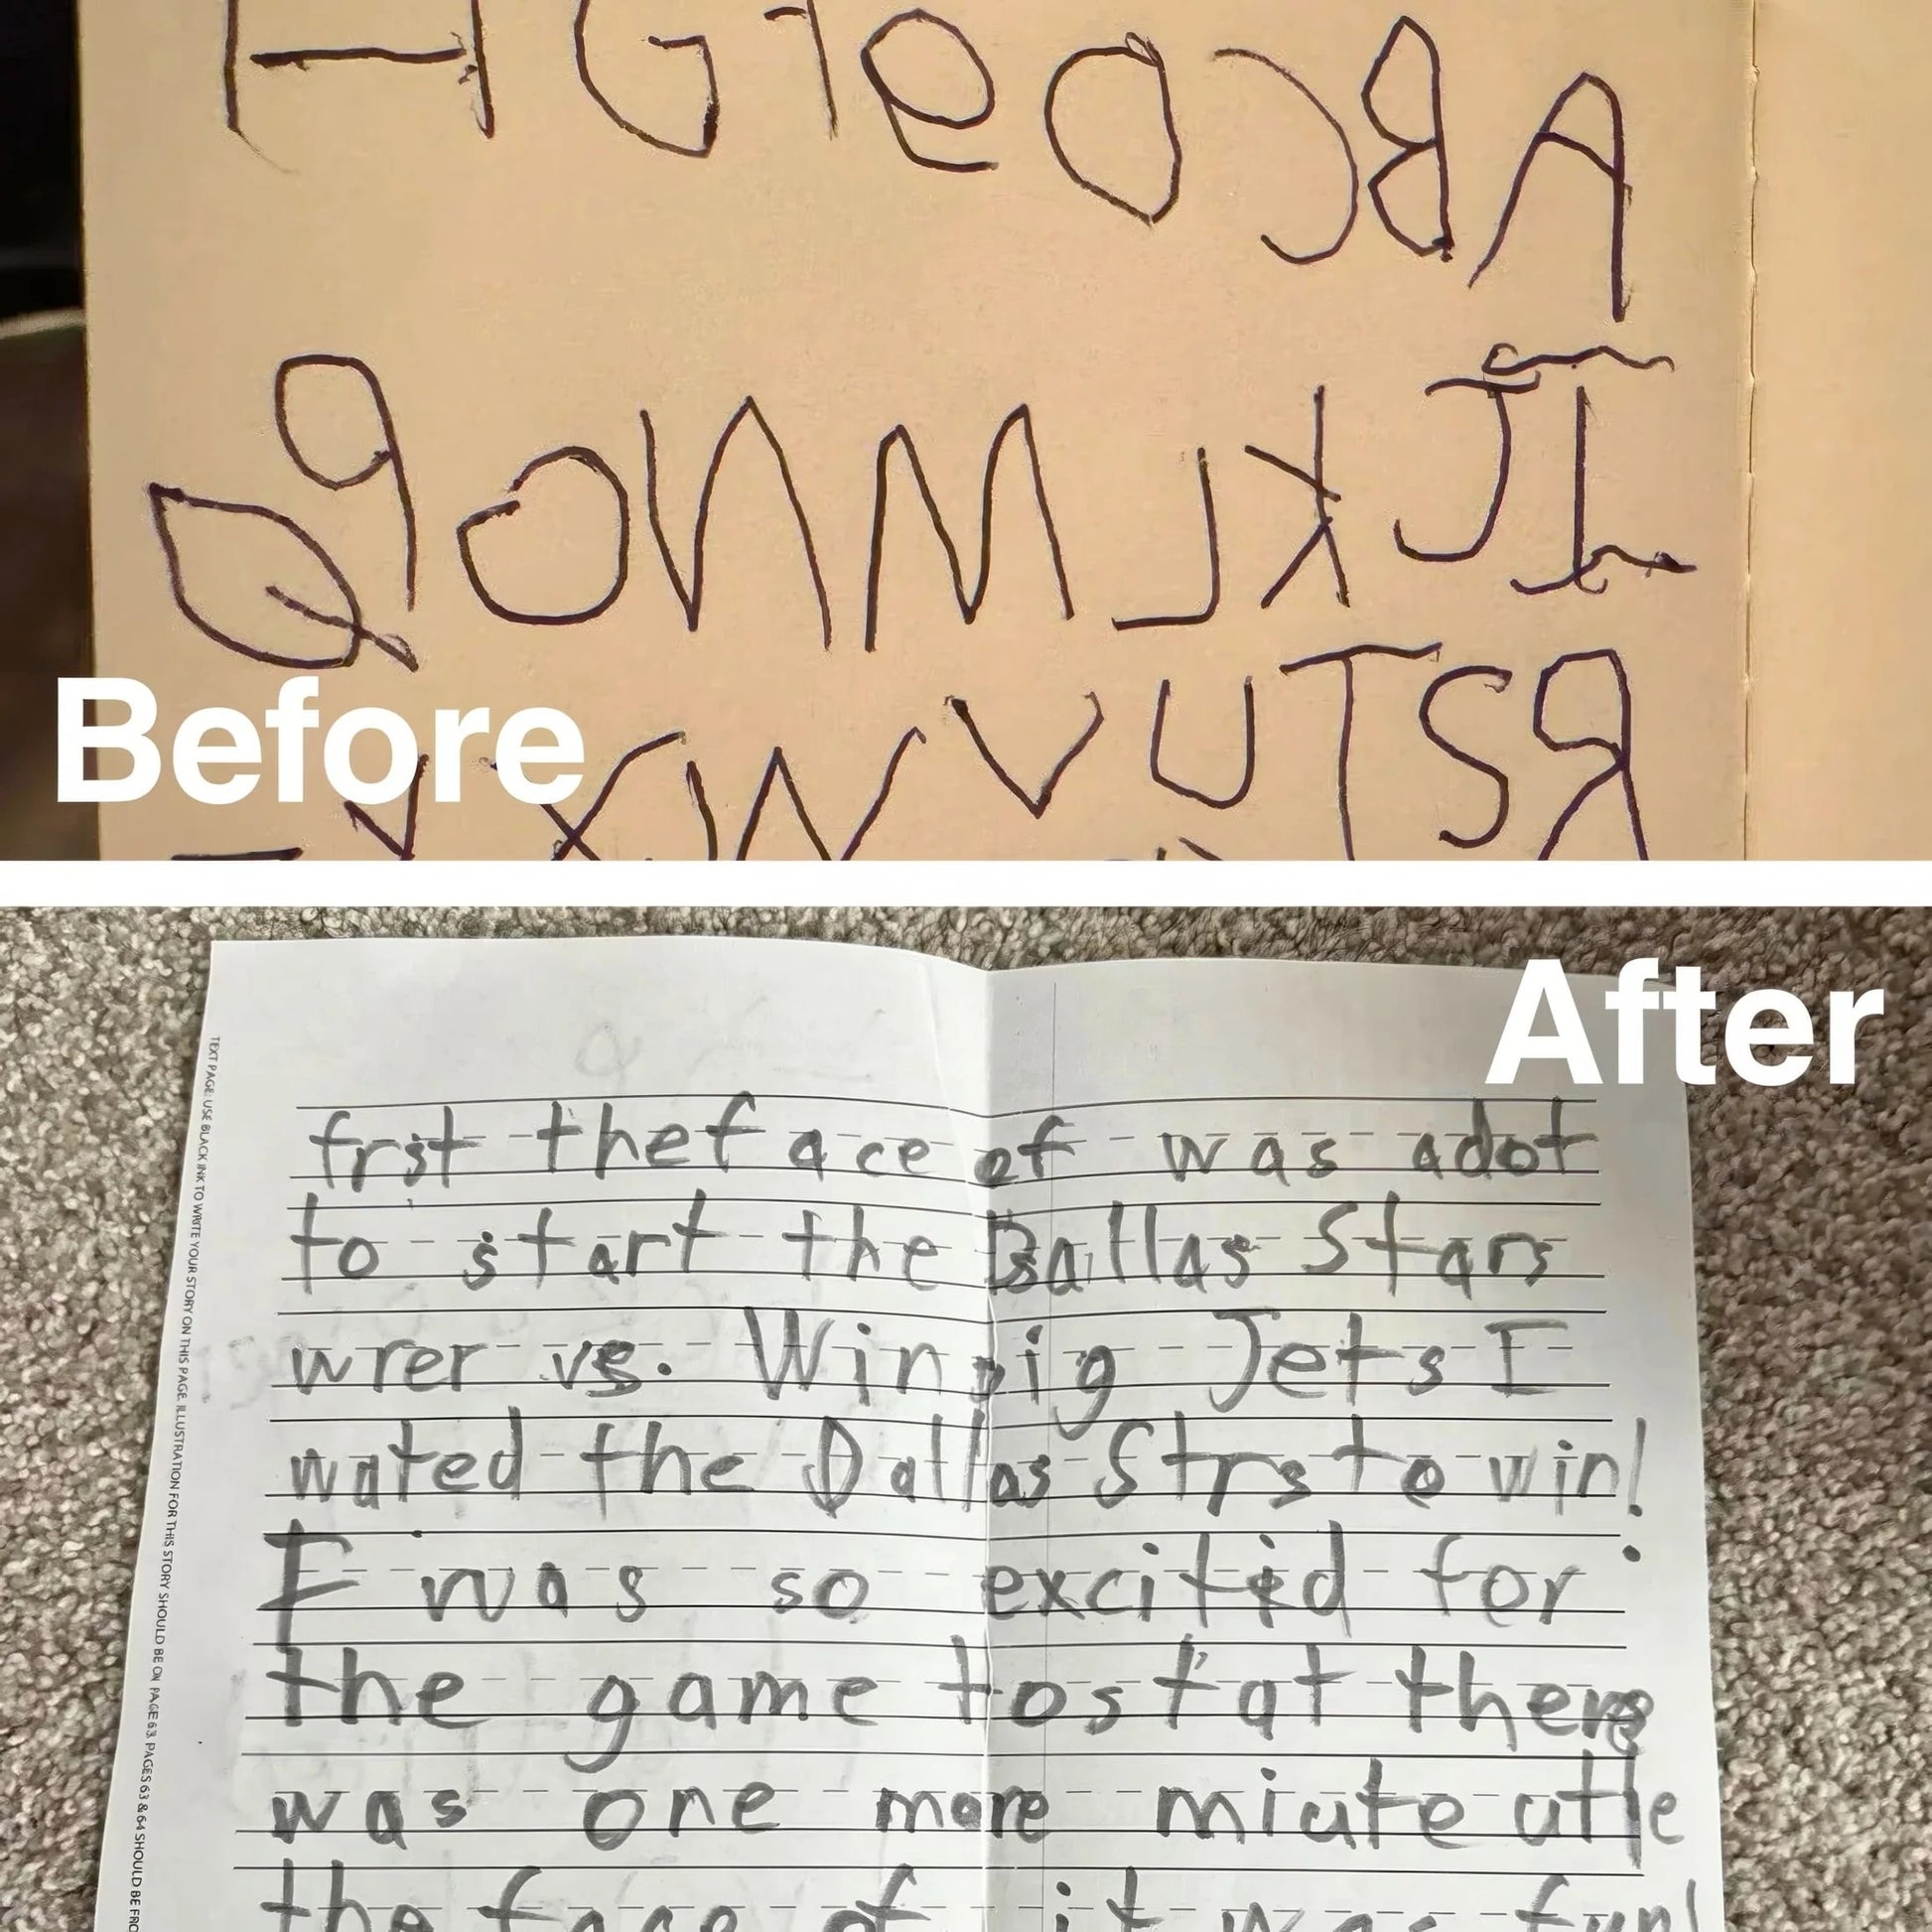 A B C D e F G H
I J K L M N O P Q
R S T U V W X Y
Before
After
TEXT PAGE: USE BLACK INK TO WRITE YOUR STORY ON THIS PAGE. ILLUSTRATION FOR THIS STORY SHOULD BE ON PAGE 63. PAGES 63 & 64 SHOULD BE FRO
frst thef ace of was adot
to start the Dallas Stars
wrer vs. Winpig Jets I
wated the Dallas Strs to win!
I was so excitid for
the game tostat there
was one more miute utle
the face of it was fun!